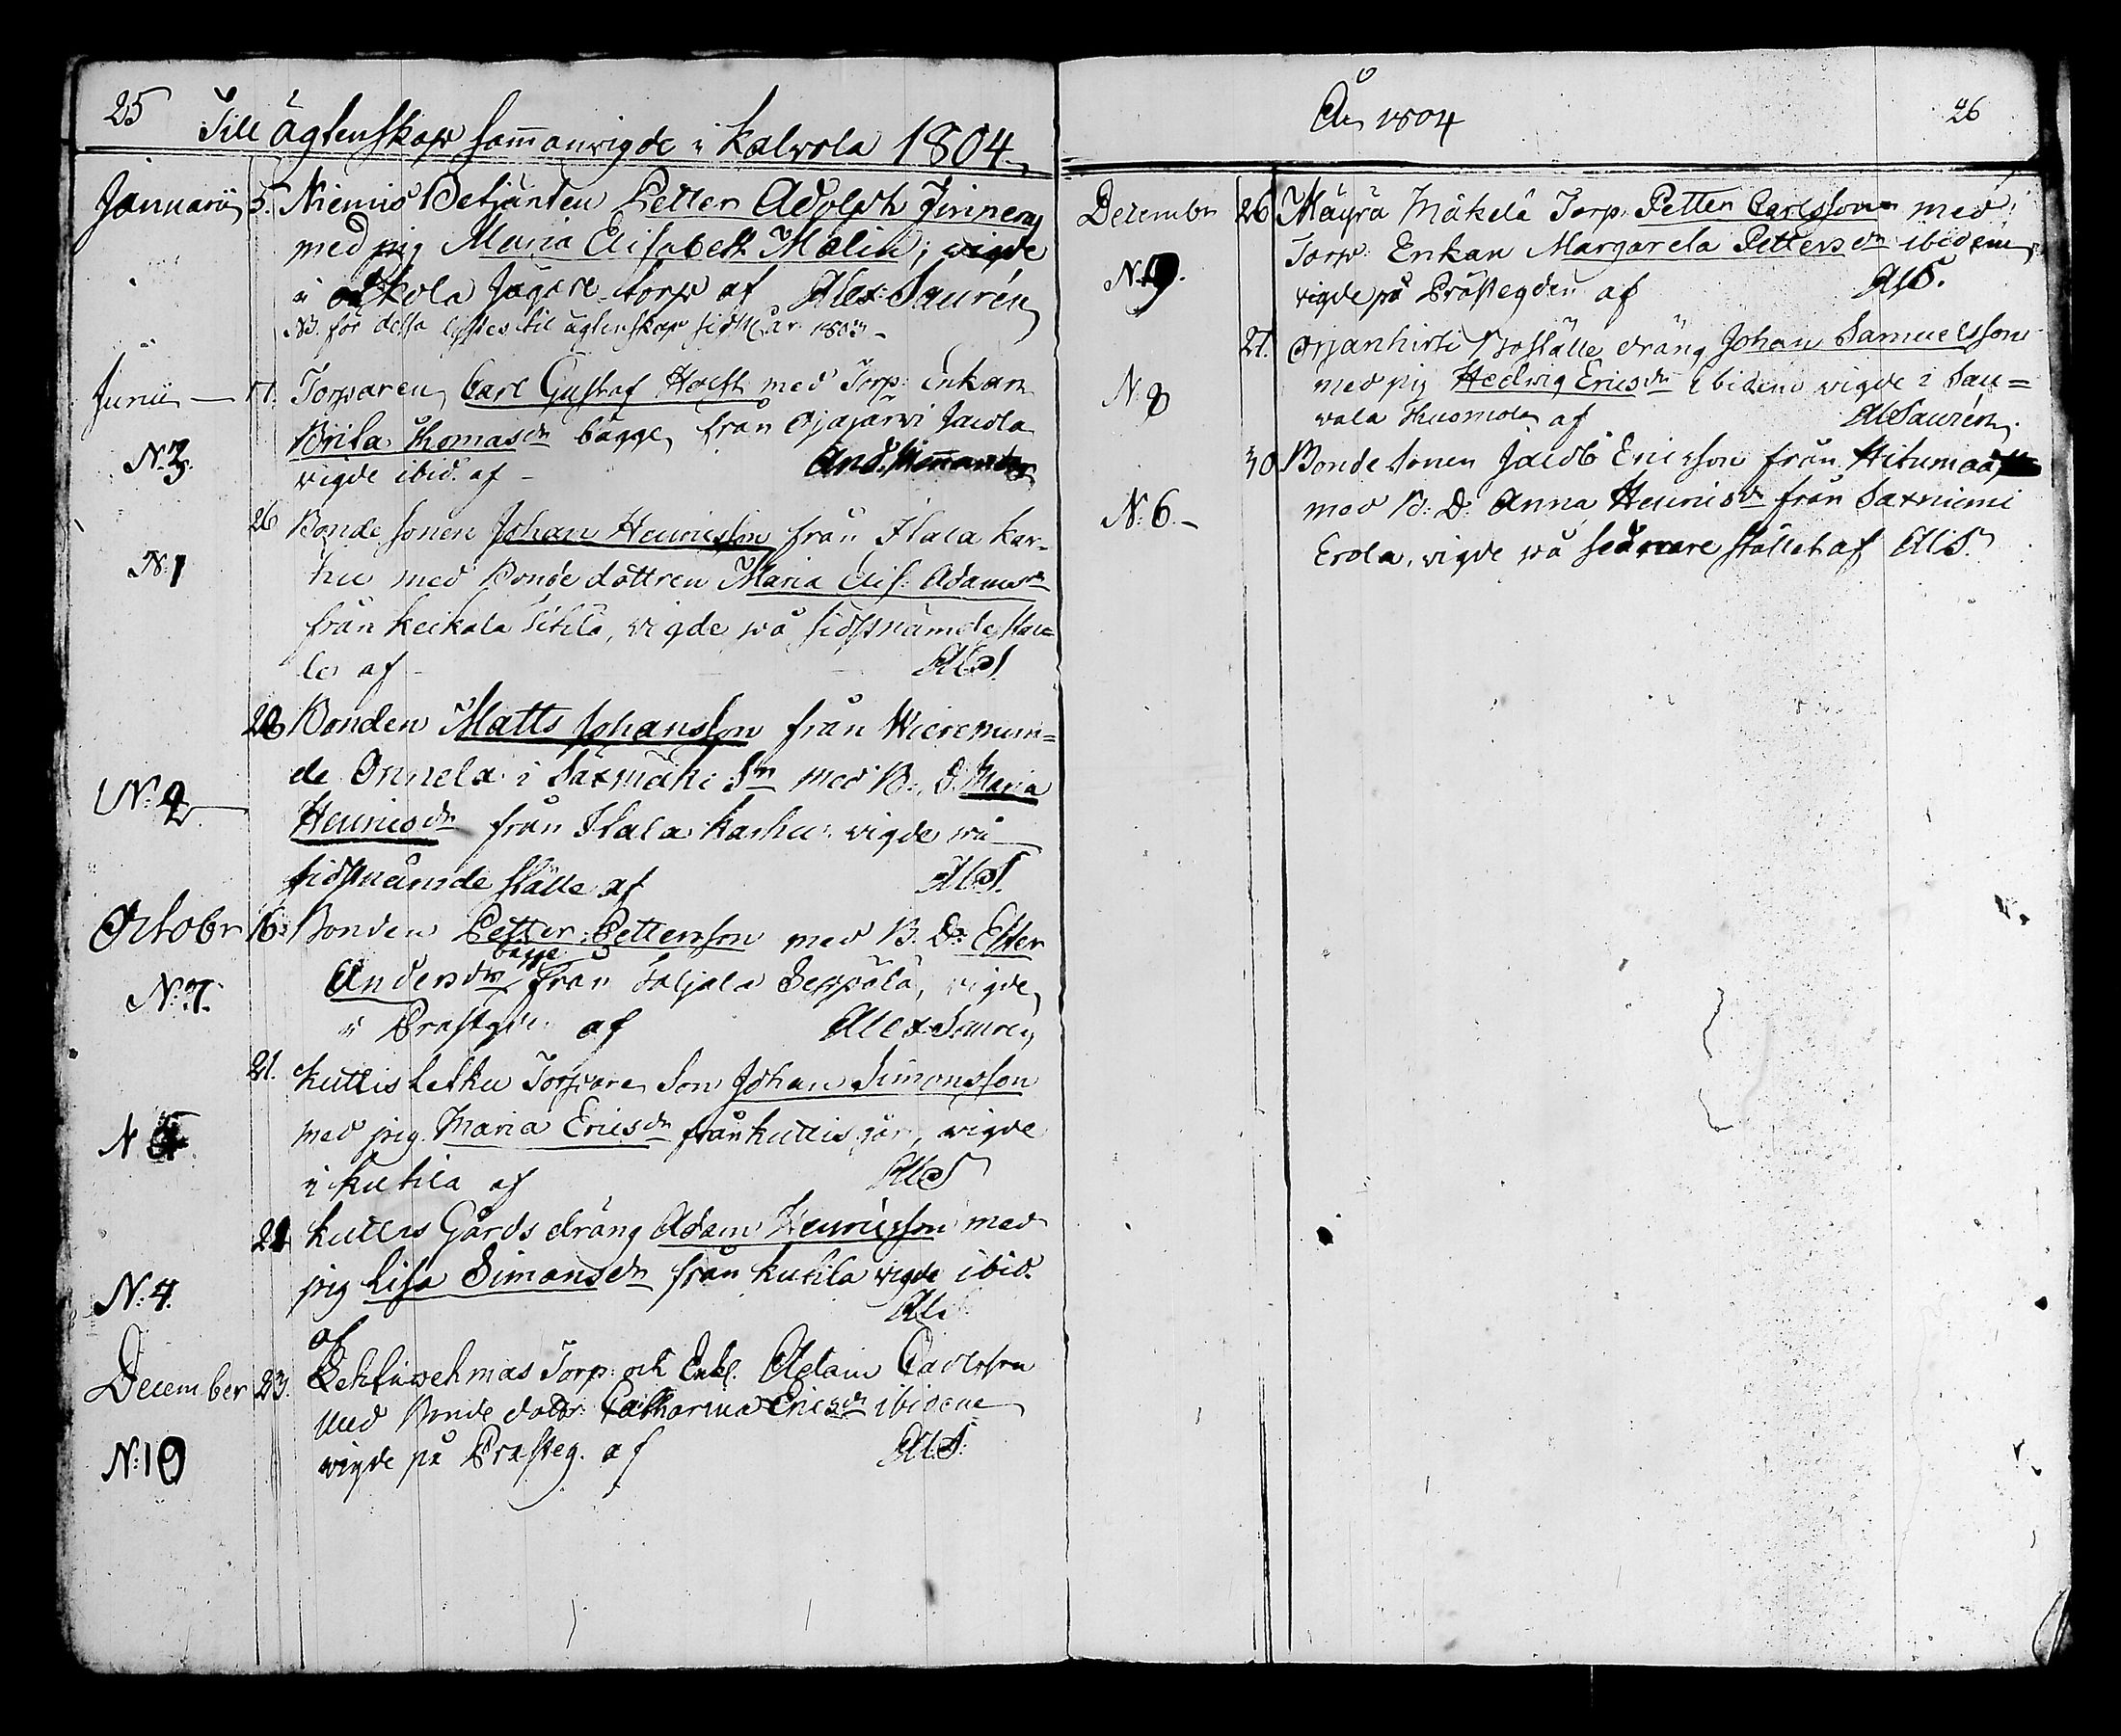 25
Till ägtenskap sam̄anvigde i Kalvola 1804
Januarii 5. Niemis Betjänten Petter Adolph Finneng
med pig Maria Elisabeth Molin; vigde
i Jägare torp af Alex: Saurén
NB. för dessa lystes til ägtenskap sidstl. år 1803
Junii 17. Torparen Carl Gustaf Holft med Torp: Enkan
N:3. Brita Thomasdr bägge från Ojajärvi Jacola
vigde ibid. af And.
26 Bonde sonen Johan Henricsson från Ilala Kar-
N:1 hu med Bonde dottren Maria Elis: Adamsdr
från Keikala Sitilä, vigde på sidstnämde stäl=
le af Al S.
28 Bonden Matts Johansson från
de Onnela i Saxmäki Sn med B: D: Maria
N:2 Henricsdr från Ilala Karhu vigde på
sidstnämde ställe af Al S.
October 16: Bonden Petter Pettersson med B. D: Ester
bägge
N:7. Andersdr från Taljala Seppälä, vigde
i Prästgån af Alex: Saurén
21. Kuttis Letku Torpare Son Johan Simonsson
N 5 med pig. Maria Ericsdr från Kuttis går, vigde
i Kutila af Al S
21 Kuttis Gårds dräng Adam Henricsson med
N:4. pig Lisa Simonsdr från Kutila vigde ibid.
af Al S
December 23. Torp: och Enkl. Adam Carlsson
med Bonde dottr: Catharina Ericsdr ibidem
N:10 vigde på Prästeg. af Al. S:
År 1804
26
December 26 Mäyrä Mäkelä Torp. Petter Carlsson med
Torp: Enkan Margareta Pettersdr ibidem
N:9. vigde på Prästegden af Al S.
27. Orjanhirti Boställe dräng Johan Samuelsson
N:8 med pig Hedvig Ericsdr ibidem vigde i Sau=
vala Huomola af Al Saurén
30 Bonde Sonen Jacob Ericsson från
N:6. med B: D: Anna Henricsdr från Saxniemi
Erola, vigde på sednare stället af Al S.